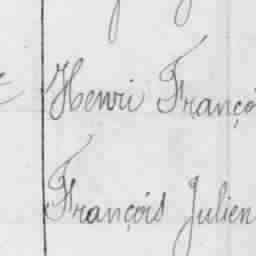 Henri Franço
François Julien